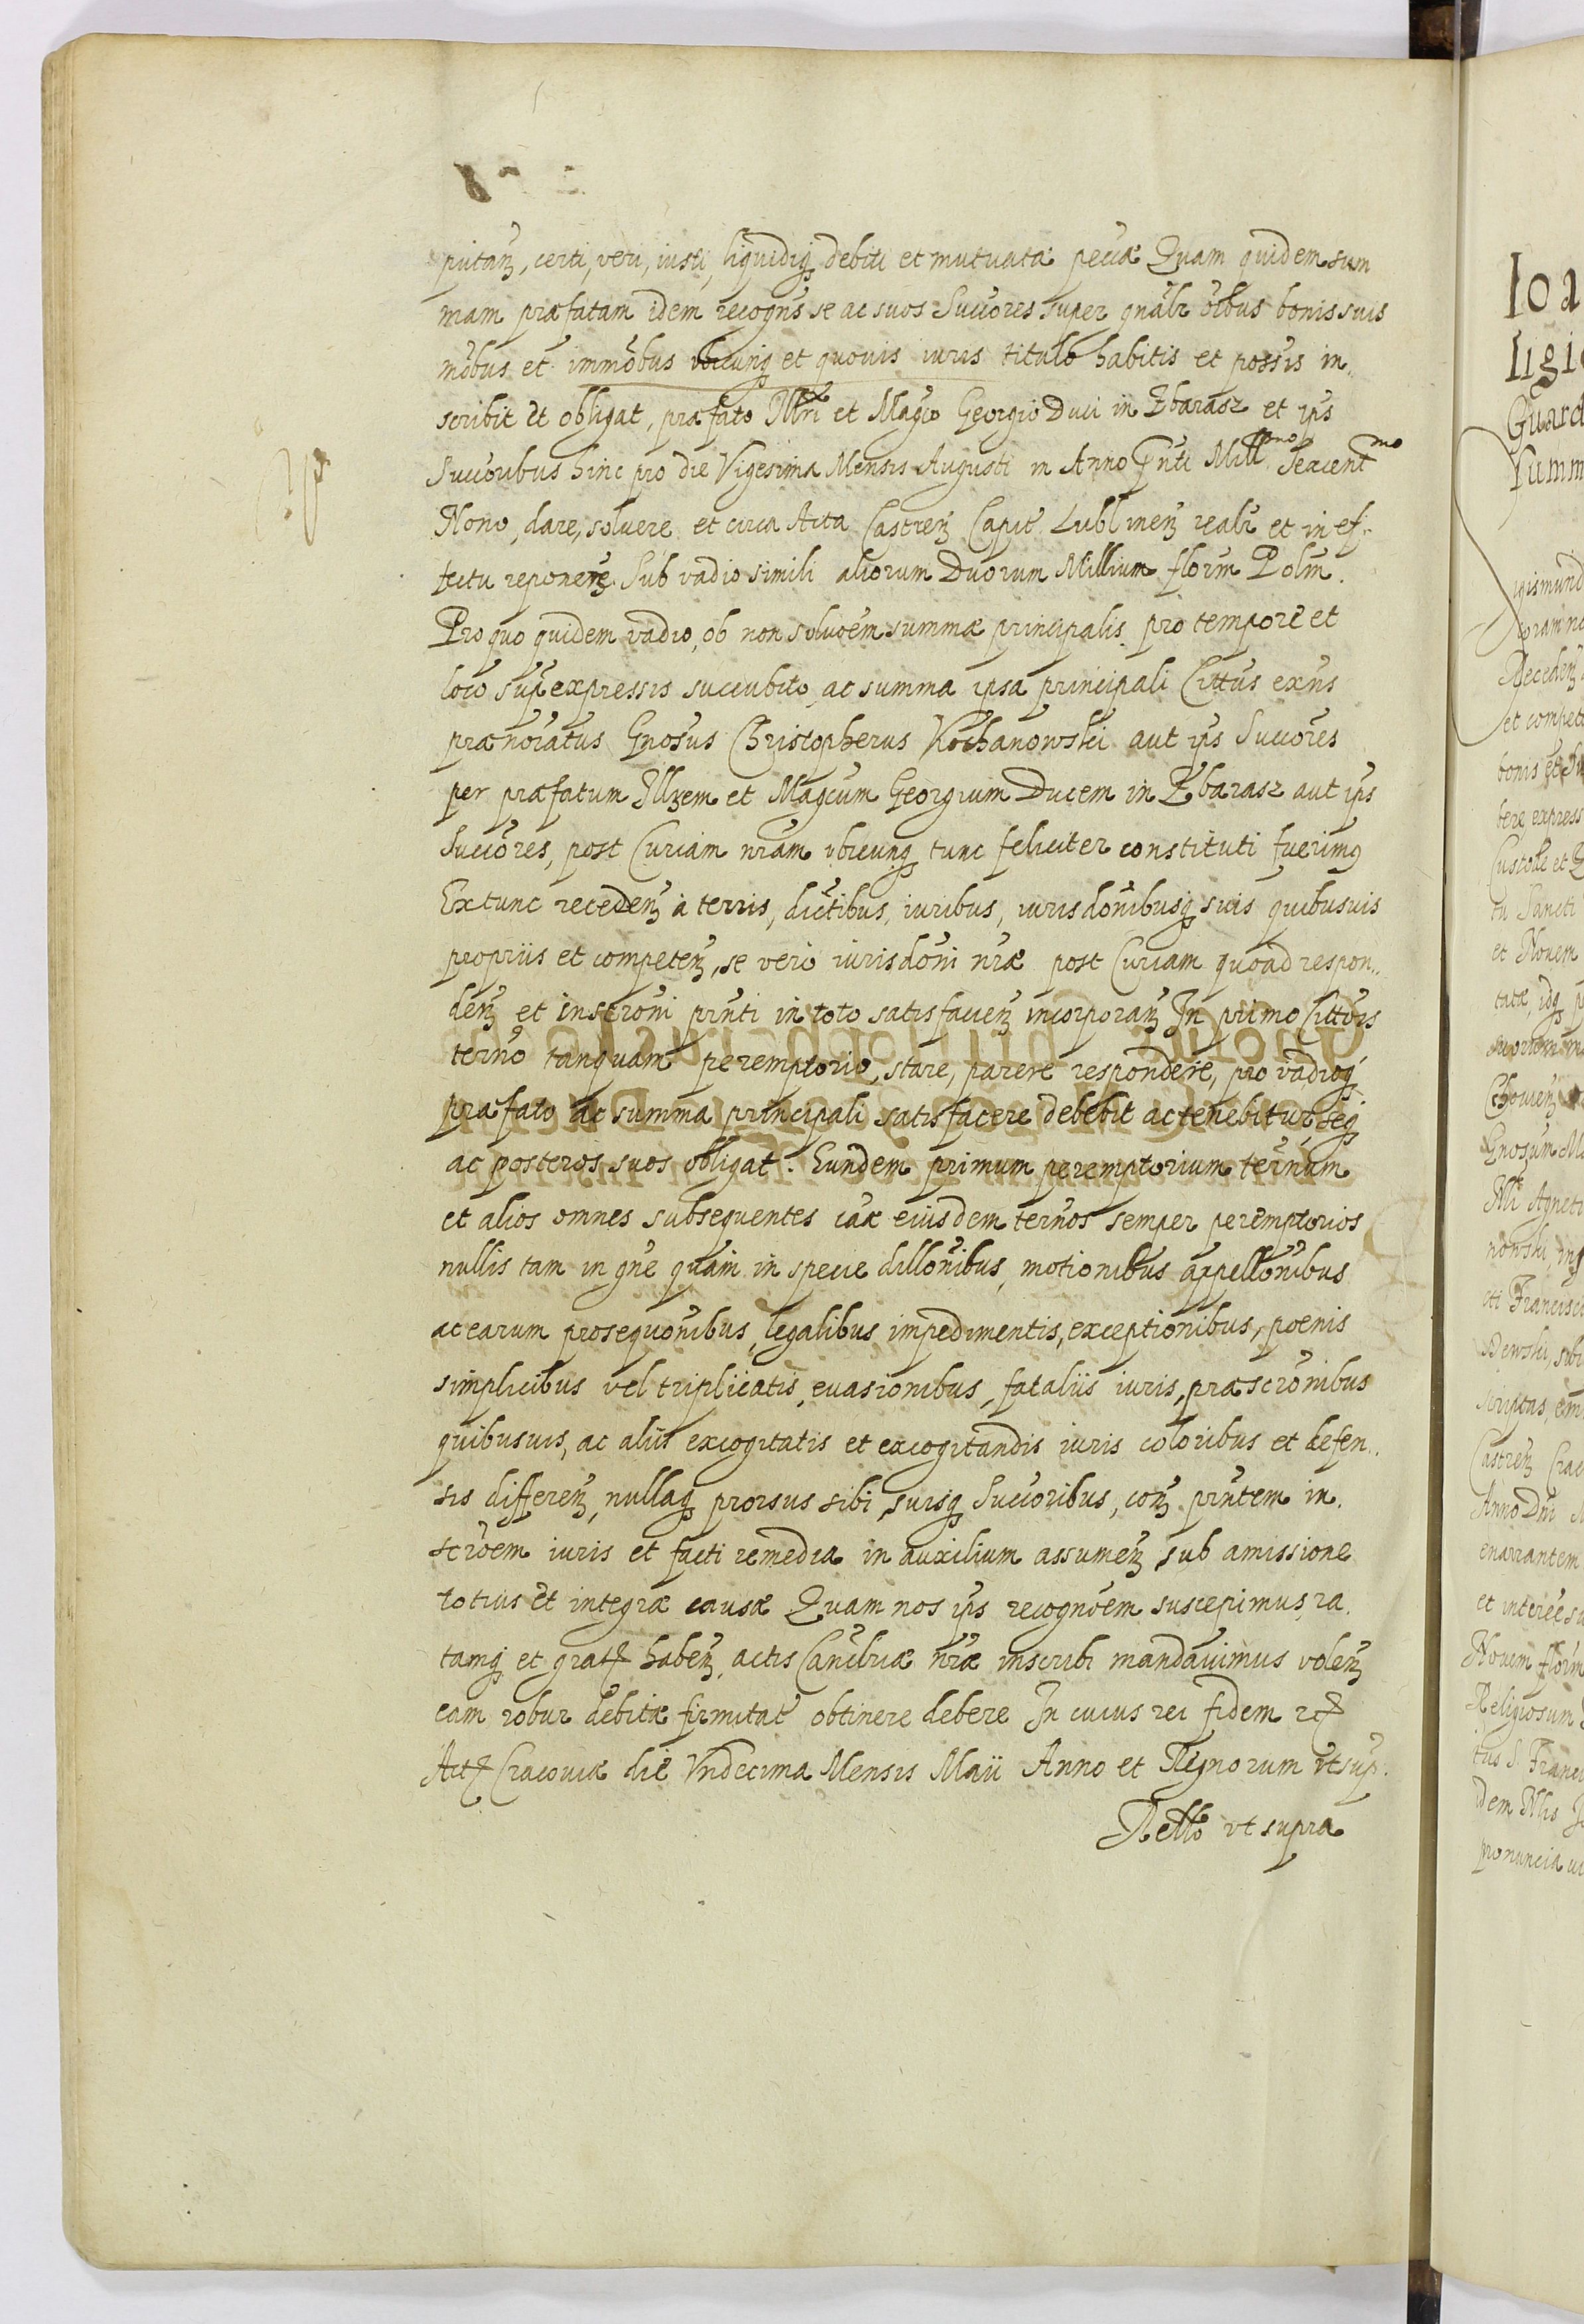 putan, certi, veri, iusti, liquidiq debiti et mutuatæ pecciæ Quam quidem sum
mam præfatam idem recogns se ac suos Succores super gnalr oibus bonis suis
mobus et immobus vbicunq et quouis iuris titulo habitis et possis in„
scribit et obligat, præfato Illri et Magco Georgio Duci in Zbarasz et ips
Succoribus hinc pro die Vigesima Mensis Augusti in Anno pnti Mill mo Sexcent mo
Nono, dare, soluere et circa Acta Castren Capit Lublinen realr et in ef„
fectu reponere Sub vadio simili aliorum Duorum Millium florm Polm.
Pro quo quidem vadio, ob non soluoem summæ principalis pro tempore et
loco supexpressis succubito, ac summa ipsa principali Cittus exns
prænoiatus Gnosus Christopherus Kochanowski aut ips Succores
per præfatum Illrem et Magcum Georgium Ducem in Zbarasz aut ips
Succores, post Curiam nram vbicunq tunc feliciter constituti fuerimus
Ex tunc receden à terris, dictibus, iuribus, iurisdonibusq suis quibusuis
propriis et competen, se vero iurisdoni nræ post Curiam quoad respon„
den et inscroni pnti in toto satisfacien incorporan In primo Cittois
terno tanquam peremptorio, stare, parere respondere, pro vadioq
præfato ac summa principali satisfacere debebit ac tenebitur, seq
ac posteros suos obligat. Eundem primum peremptorium ternum
et alios omnes subsequentes caæ eiusdem ternos semper peremptorios
nullis tam in gne quam in specie dillonibus, motionibus appellonibus
ac earum prosequonibus, legalibus impedimentis, exceptionibus, poenis
simplicibus vel triplicatis, euasionibus, fataliis iuris, præscronibus
quibusuis, ac aliis excogitatis et excogitandis iuris coloribus et defen„
sis differen, nullaq prorsus sibi, suisq Succoribus, con pntem in
scroem iuris et facti remedia in auxilium assumen sub amissione
totius et integræ causæ Quam nos ips recognoem suscepimus, ra
tamq et grat haben, actis Cancriæ nræ inscribi mandauimus volen
eam robur debitæ firmitat obtinere debere In cuius rei fidem etc
Act Cracouiæ die Vndecima Mensis Maii Anno et Regnorum vt sup.
Rello vt supra